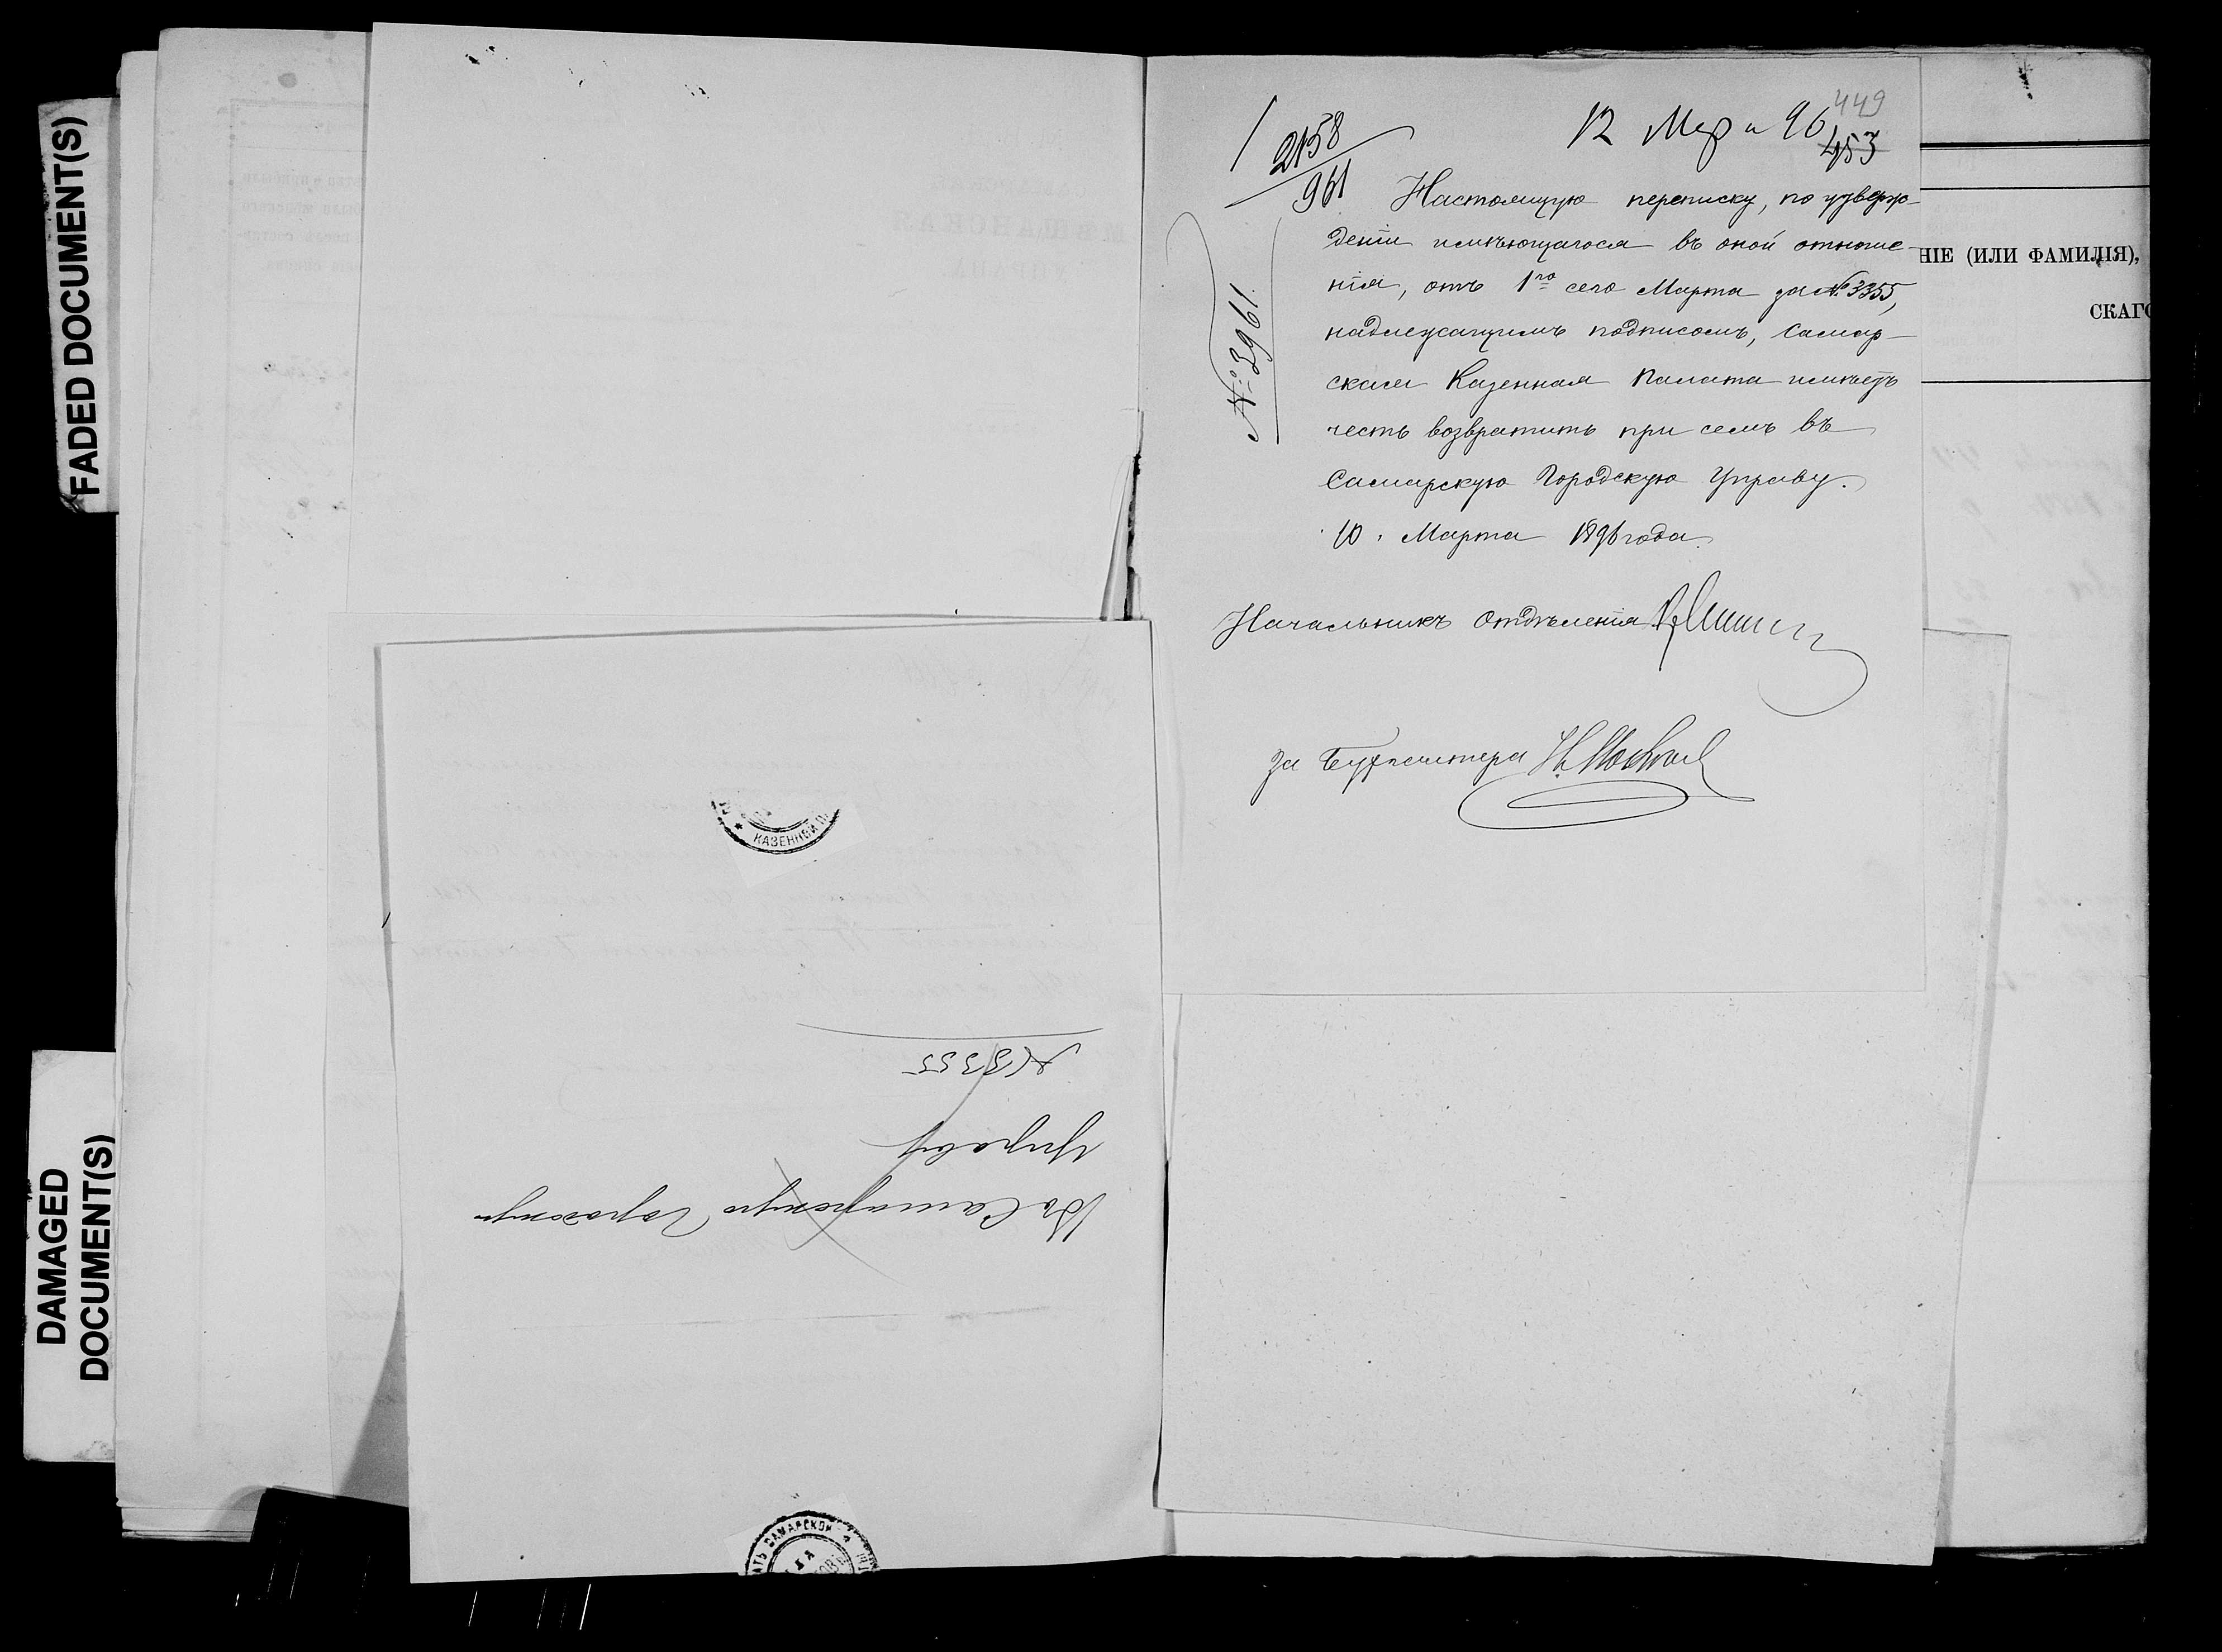 FADED DOCUMENT(S)
DAMAGED
DOCUMENT(S)
449
12 Мар 96
453
2158
961
№ 3961.
Настоящую переписку, по утверж-
деніи имѣющагося въ оной отноше-
нія, отъ 1го сего Марта за № 3355,
надлежащимъ подписомъ, Самар-
ская Казенная Палата имѣетъ
честь возвратить при семъ въ
Самарскую Городскую Управу.
10 Марта 1896 года.
Начальникъ Отдѣленія
За Бухгалтера
НІЕ (ИЛИ ФАМИЛІЯ),
СКАГО
КАЗЕННОЙ П
Въ Самарскую Городскую
Управу
№ 3355
АТЬ САМАРСКОЙ